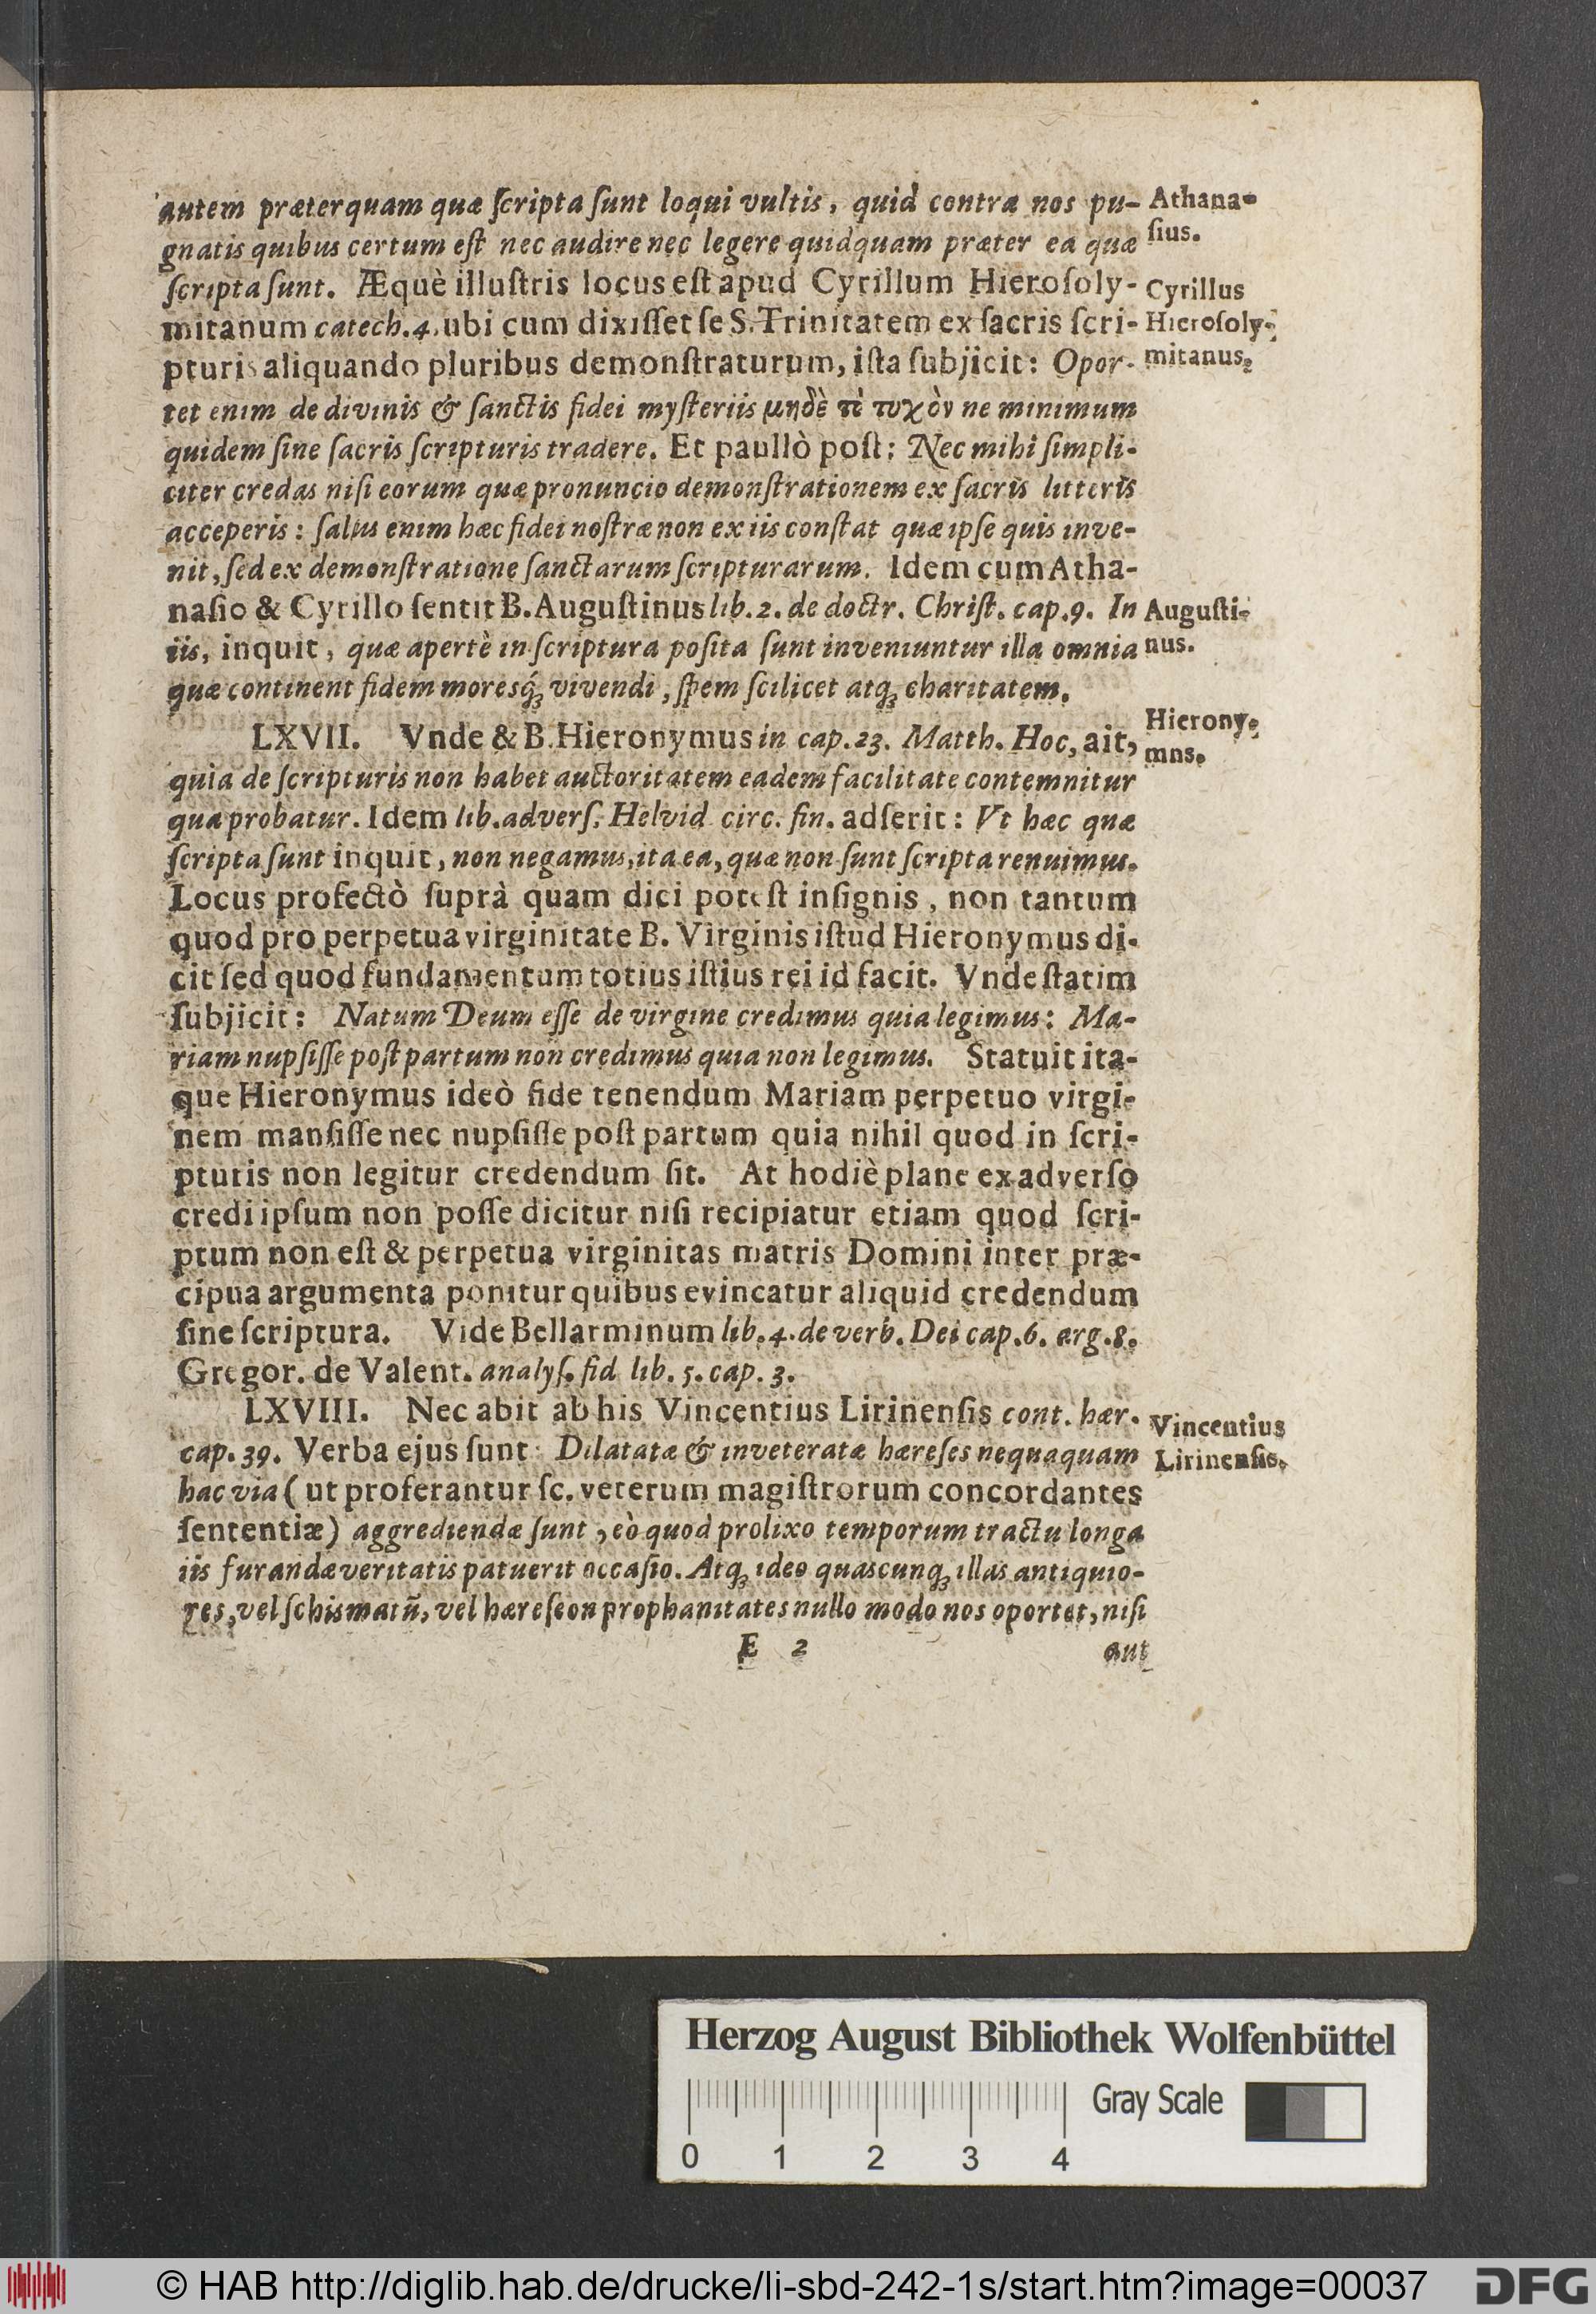 autem præterquam quæ ſcripta ſunt loqui vultis, quid contra nos pu-
gnatis quibus certum eſt nec audire nec legere quidquam præter ea quæ
ſcripta ſunt. Æquè illuſtris locus eſt apud Cyrillum Hieroſoly-
mitanum catech. 4. ubi cum dixiſſet ſe S. Trinitatem ex ſacris ſcri-
pturis aliquando pluribus demonſtraturum, iſta ſubjicit: Opor-
tet enim de divinis & ſanctis fidei myſteriis μηδὲ τὶ τυχὸν ne minimum
quidem ſine ſacris ſcripturis tradere. Et paullò poſt: Nec mihi ſimpli-
citer credas niſi eorum quæ pronuncio demonſtrationem ex ſacris litteris
acceperis: ſalus enim hæc fidei noſtræ non ex iis conſtat quæ ipſe quis inve-
nit, ſed ex demonſtratione ſanctarum ſcripturarum. Idem cum Atha-
naſio & Cyrillo ſentit B. Auguſtinus lib. 2. de doctr. Chriſt. cap. 9. In
iis, inquit, quæ apertè in ſcriptura poſita ſunt inveniuntur illa omnia
quæ continent fidem moresq́ꝫ vivendi, ſpem ſcilicet atqꝫ charitatem.
LXVII. Vnde & B. Hieronymus in cap. 23. Matth. Hoc, ait,
quia de ſcripturis non habet auctoritatem eadem facilitate contemnitur
qua probatur. Idem lib. adverſ. Helvid circ. fin. adſerit: Vt hæc quæ
ſcripta ſunt inquit, non negamus, ita ea, quæ non ſunt ſcripta renuimus.
Locus profectò ſuprà quam dici poteſt inſignis, non tantum
quod pro perpetua virginitate B. Virginis iſtud Hieronymus di-
cit ſed quod fundamentum totius iſtius rei id facit. Vnde ſtatim
ſubjicit: Natum Deum eſſe de virgine credimus quia legimus: Ma-
riam nupſiſſe poſt partum non credimus quia non legimus. Statuit ita-
que Hieronymus ideò fide tenendum Mariam perpetuo virgi-
nem manſiſſe nec nupſiſſe poſt partum quia nihil quod in ſcri-
pturis non legitur credendum ſit. At hodiè plane ex adverſo
credi ipſum non poſſe dicitur niſi recipiatur etiam quod ſcri-
ptum non eſt & perpetua virginitas matris Domini inter præ-
cipua argumenta ponitur quibus evincatur aliquid credendum
ſine ſcriptura. Vide Bellarminum lib. 4. de verb. Dei cap. 6. arg. 8.
Gregor. de Valent. analyſ. fid lib. 5. cap. 3.
LXVIII. Nec abit ab his Vincentius Lirinenſis cont. hær.
cap. 39. Verba ejus ſunt: Dilatatæ & inveteratæ hæreſes nequaquam
hac via ( ut proferantur ſc. veterum magiſtrorum concordantes
ſententiæ) aggrediendæ ſunt, eò quod prolixo temporum tractu longa
iis furandæ veritatis patuerit occaſio. Atqꝫ ideo quascunqꝫ illas antiquio-
res, vel ſchismatũ, vel hæreſeon prophanitates nullò modo nos oportet, niſi
E 2 aut
Athana-
ſius.
Cyrillus
Hieroſoly-
mitanus.
Auguſti-
nus.
Hierony-
mns.
Vincentius
Lirinenſis.
Herzog August Bibliothek Wolfenbüttel
Gray Scale
0 1 2 3 4
© HAB http://diglib.hab.de/drucke/li-sbd-242-1s/start.htm?image=00037
DFG